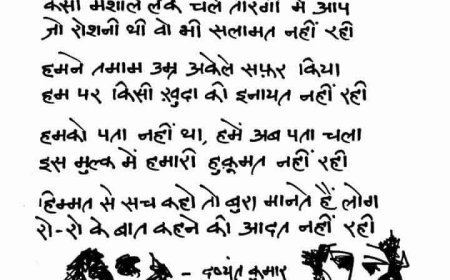 कैसी मशालें लेके चले तीरगी में आप
जो रोशनी थी वो भी सलामत नहीं रही
हमने तमाम उम्र अकेले सफ़र किया
हम पर किसी ख़ुदा की इनायत नहीं रही
हमको पता नहीं था, हमें अब पता चला
इस मुल्क में हमारी हुकूमत नहीं रही
हिम्मत से सच कहो तो बुरा मानते हैं लोग
रो-रो के बात कहने की आदत नहीं रही
- दुष्यंत कुमार